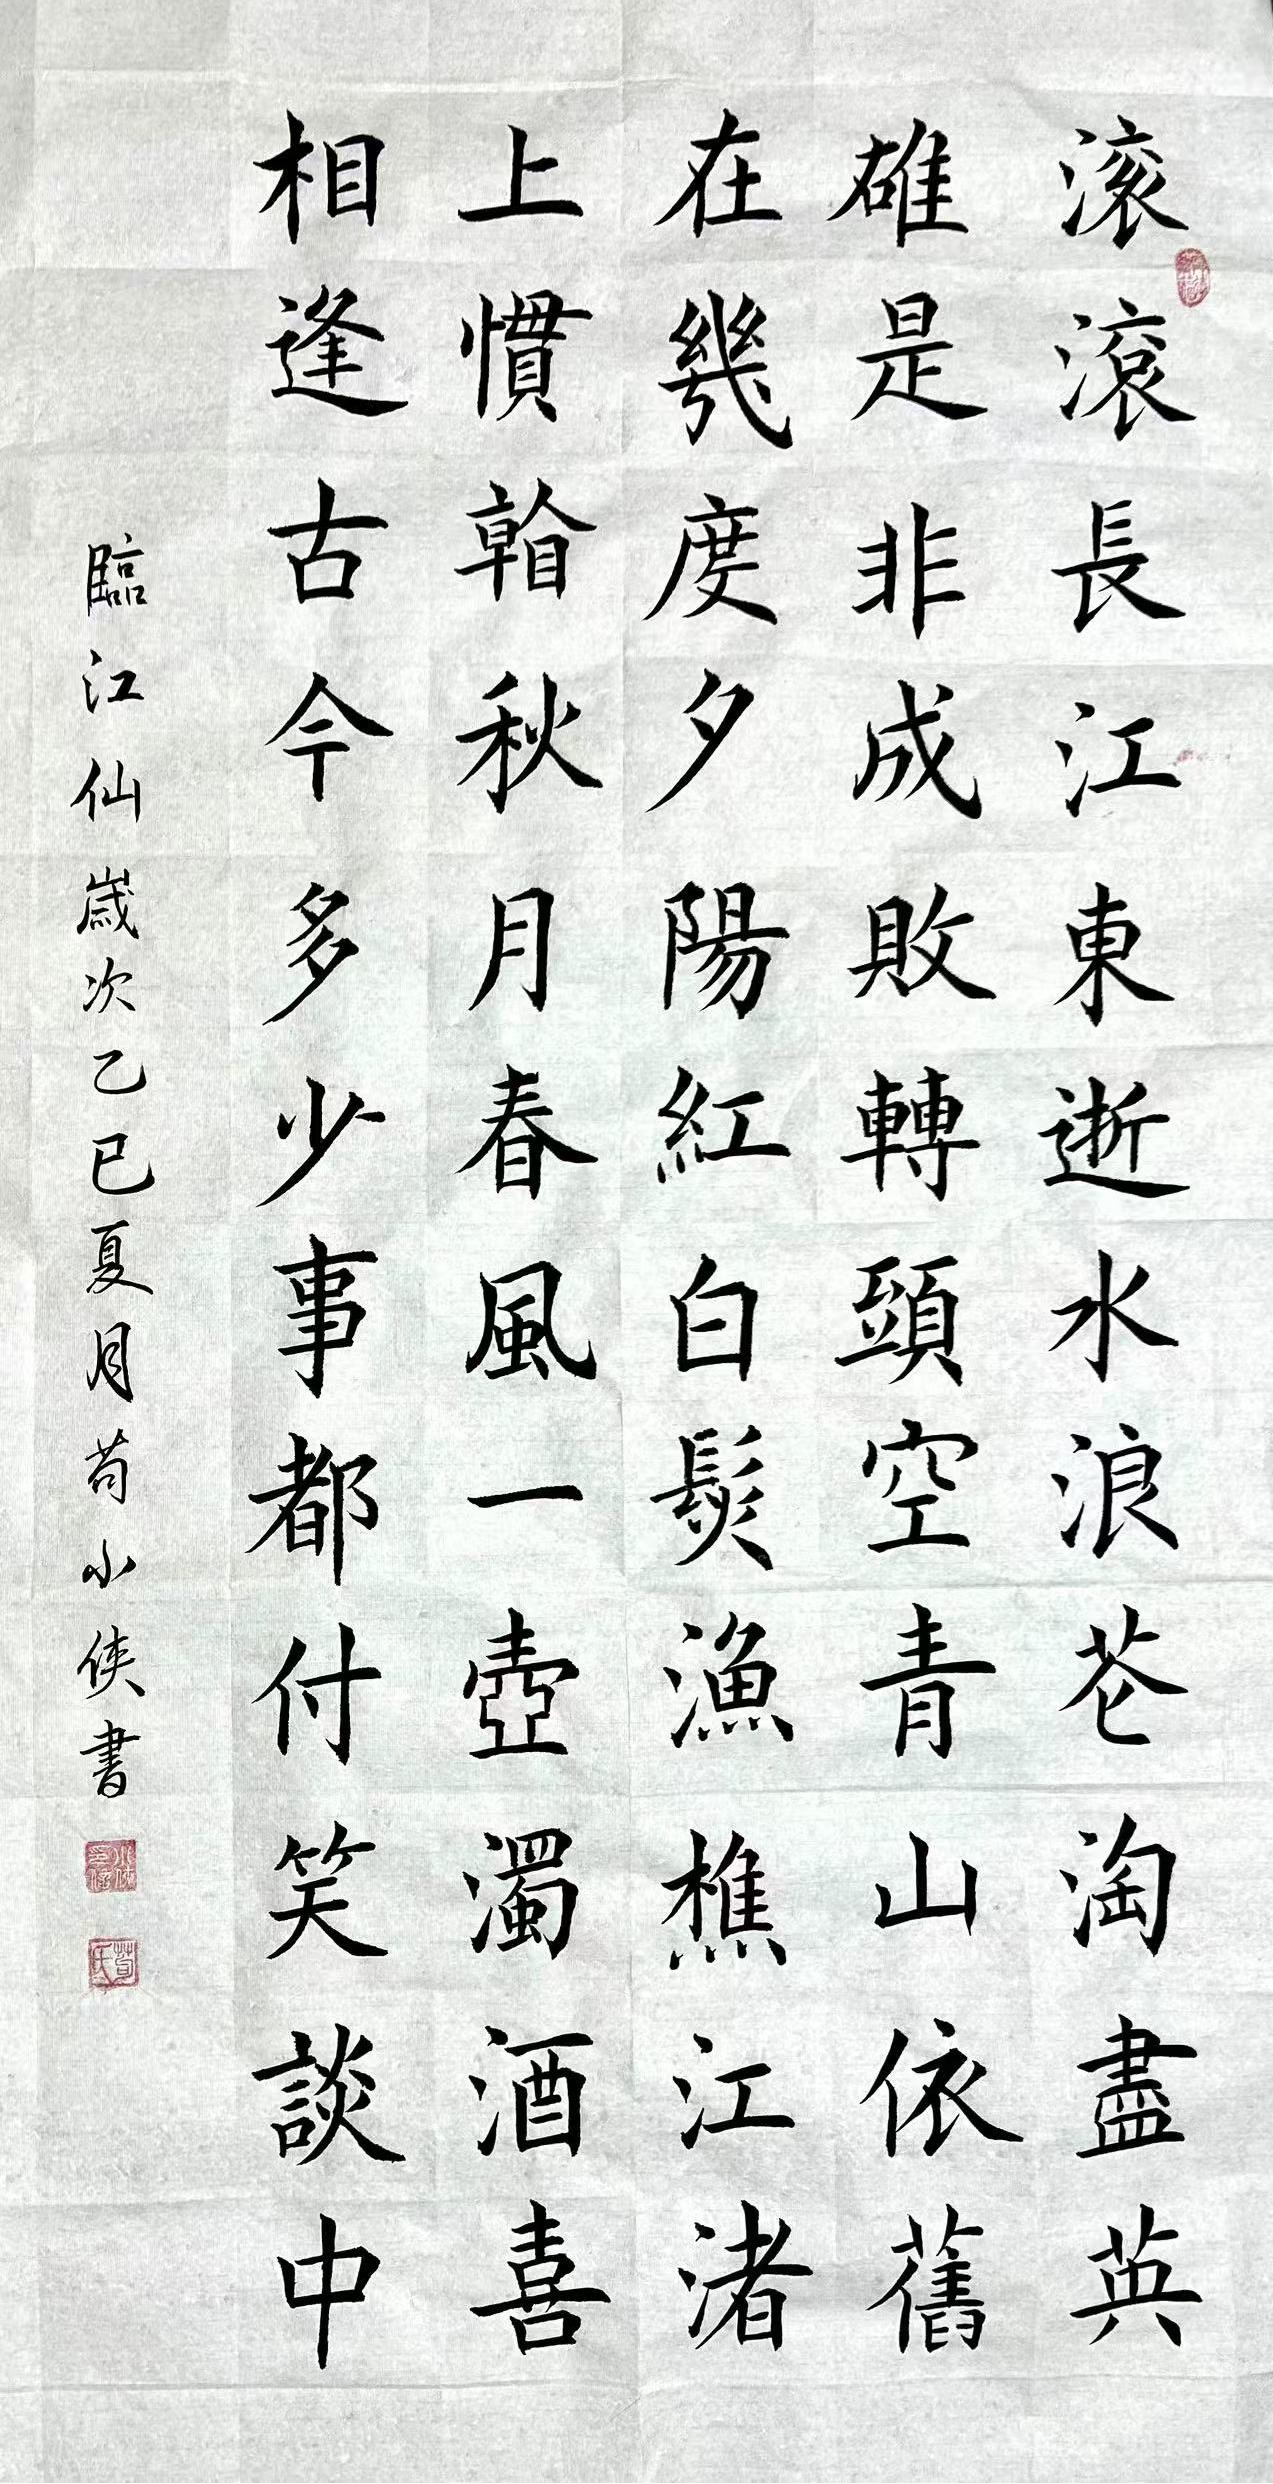 滚滾長江東逝水浪芲淘盡英
雄是非成敗轉頭空青山依舊
在幾度夕陽紅白髮漁樵江渚
上慣㫪秋月春風一壺濁酒喜
相逢古今多少事都付笑談中
臨江仙歲次乙巳夏月苟小侠書